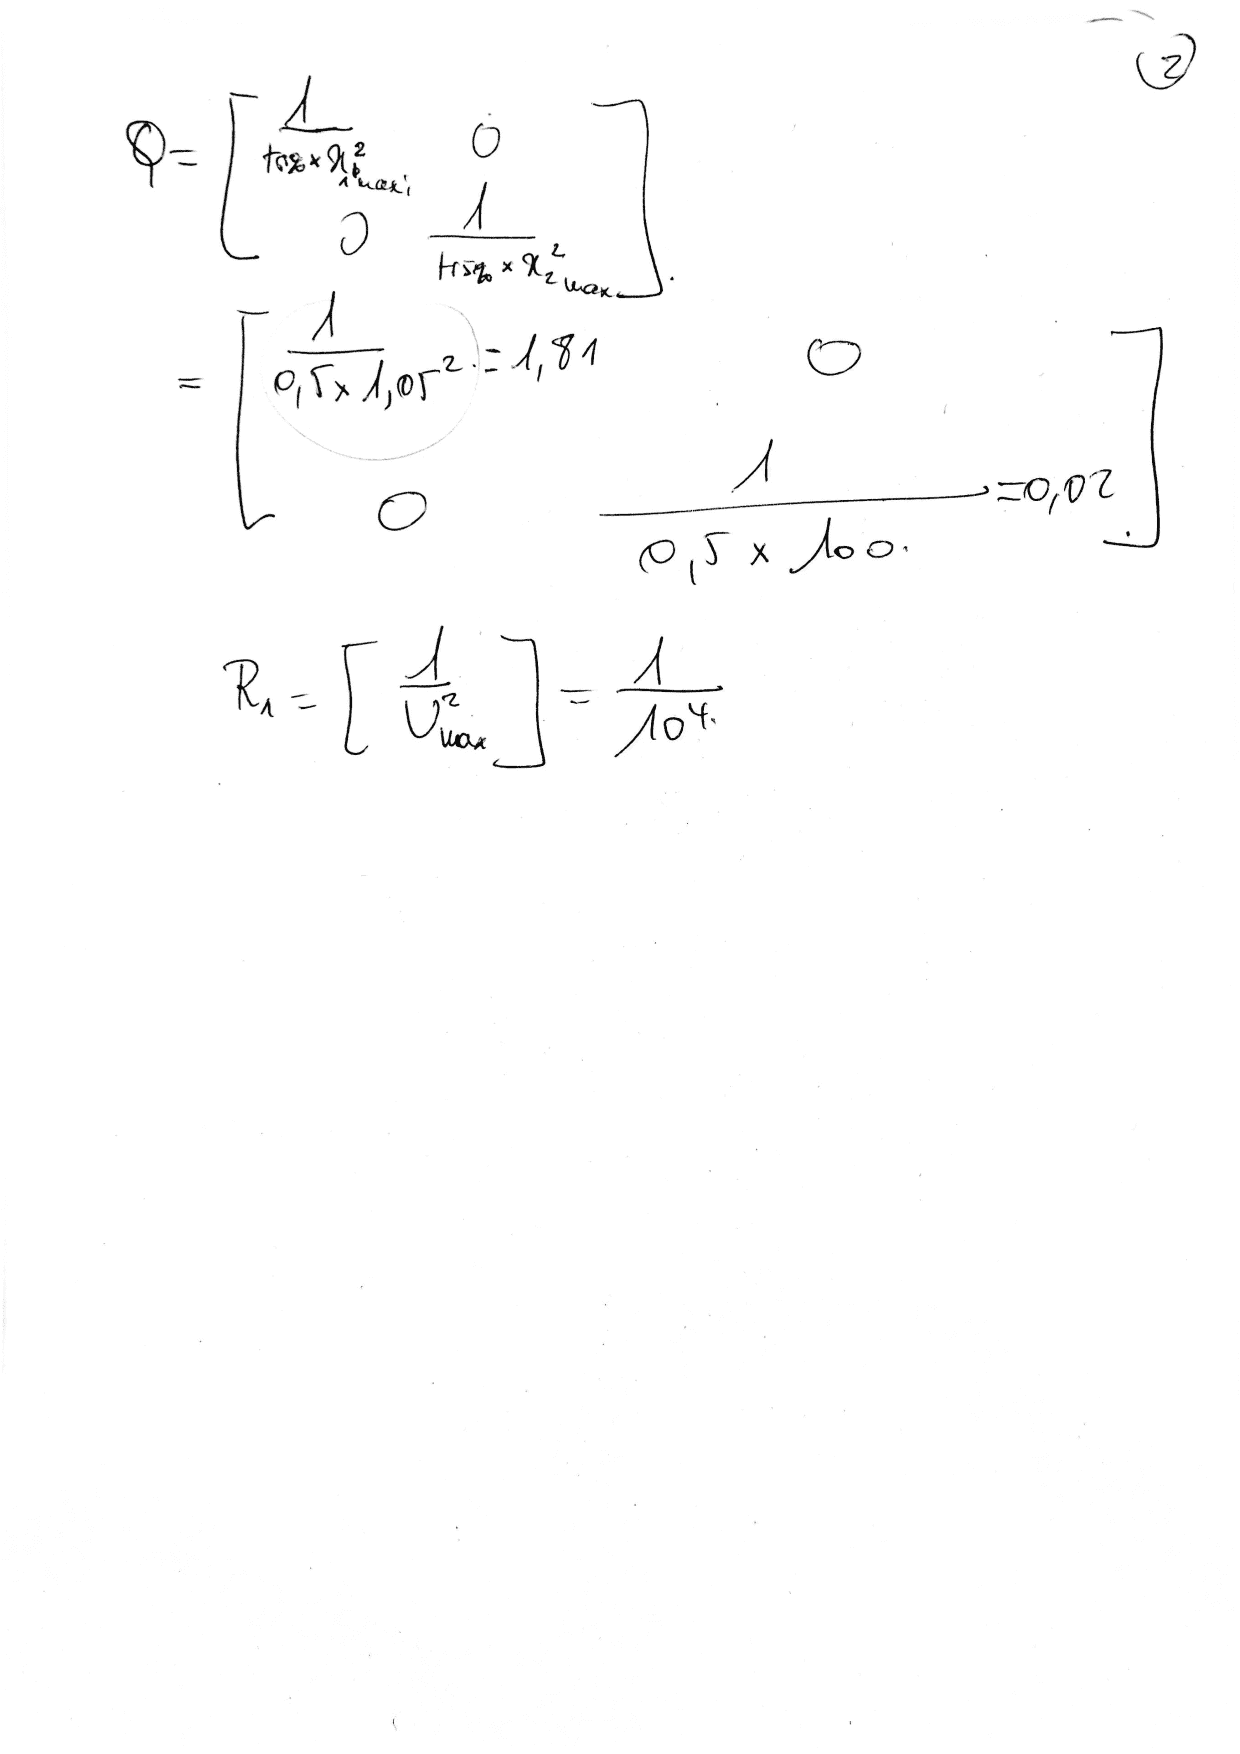 2
Q = [ 1 / (tr5% × x₁²max) 0
0 1 / (tr5% × x₂²max) ].
= [ 1 / (0,5 × 1,05²) = 1,81 0
0 1 / (0,5 × 100.) = 0,02 ]
R₁ = [ 1 / U²max ] = 1 / 10⁴.